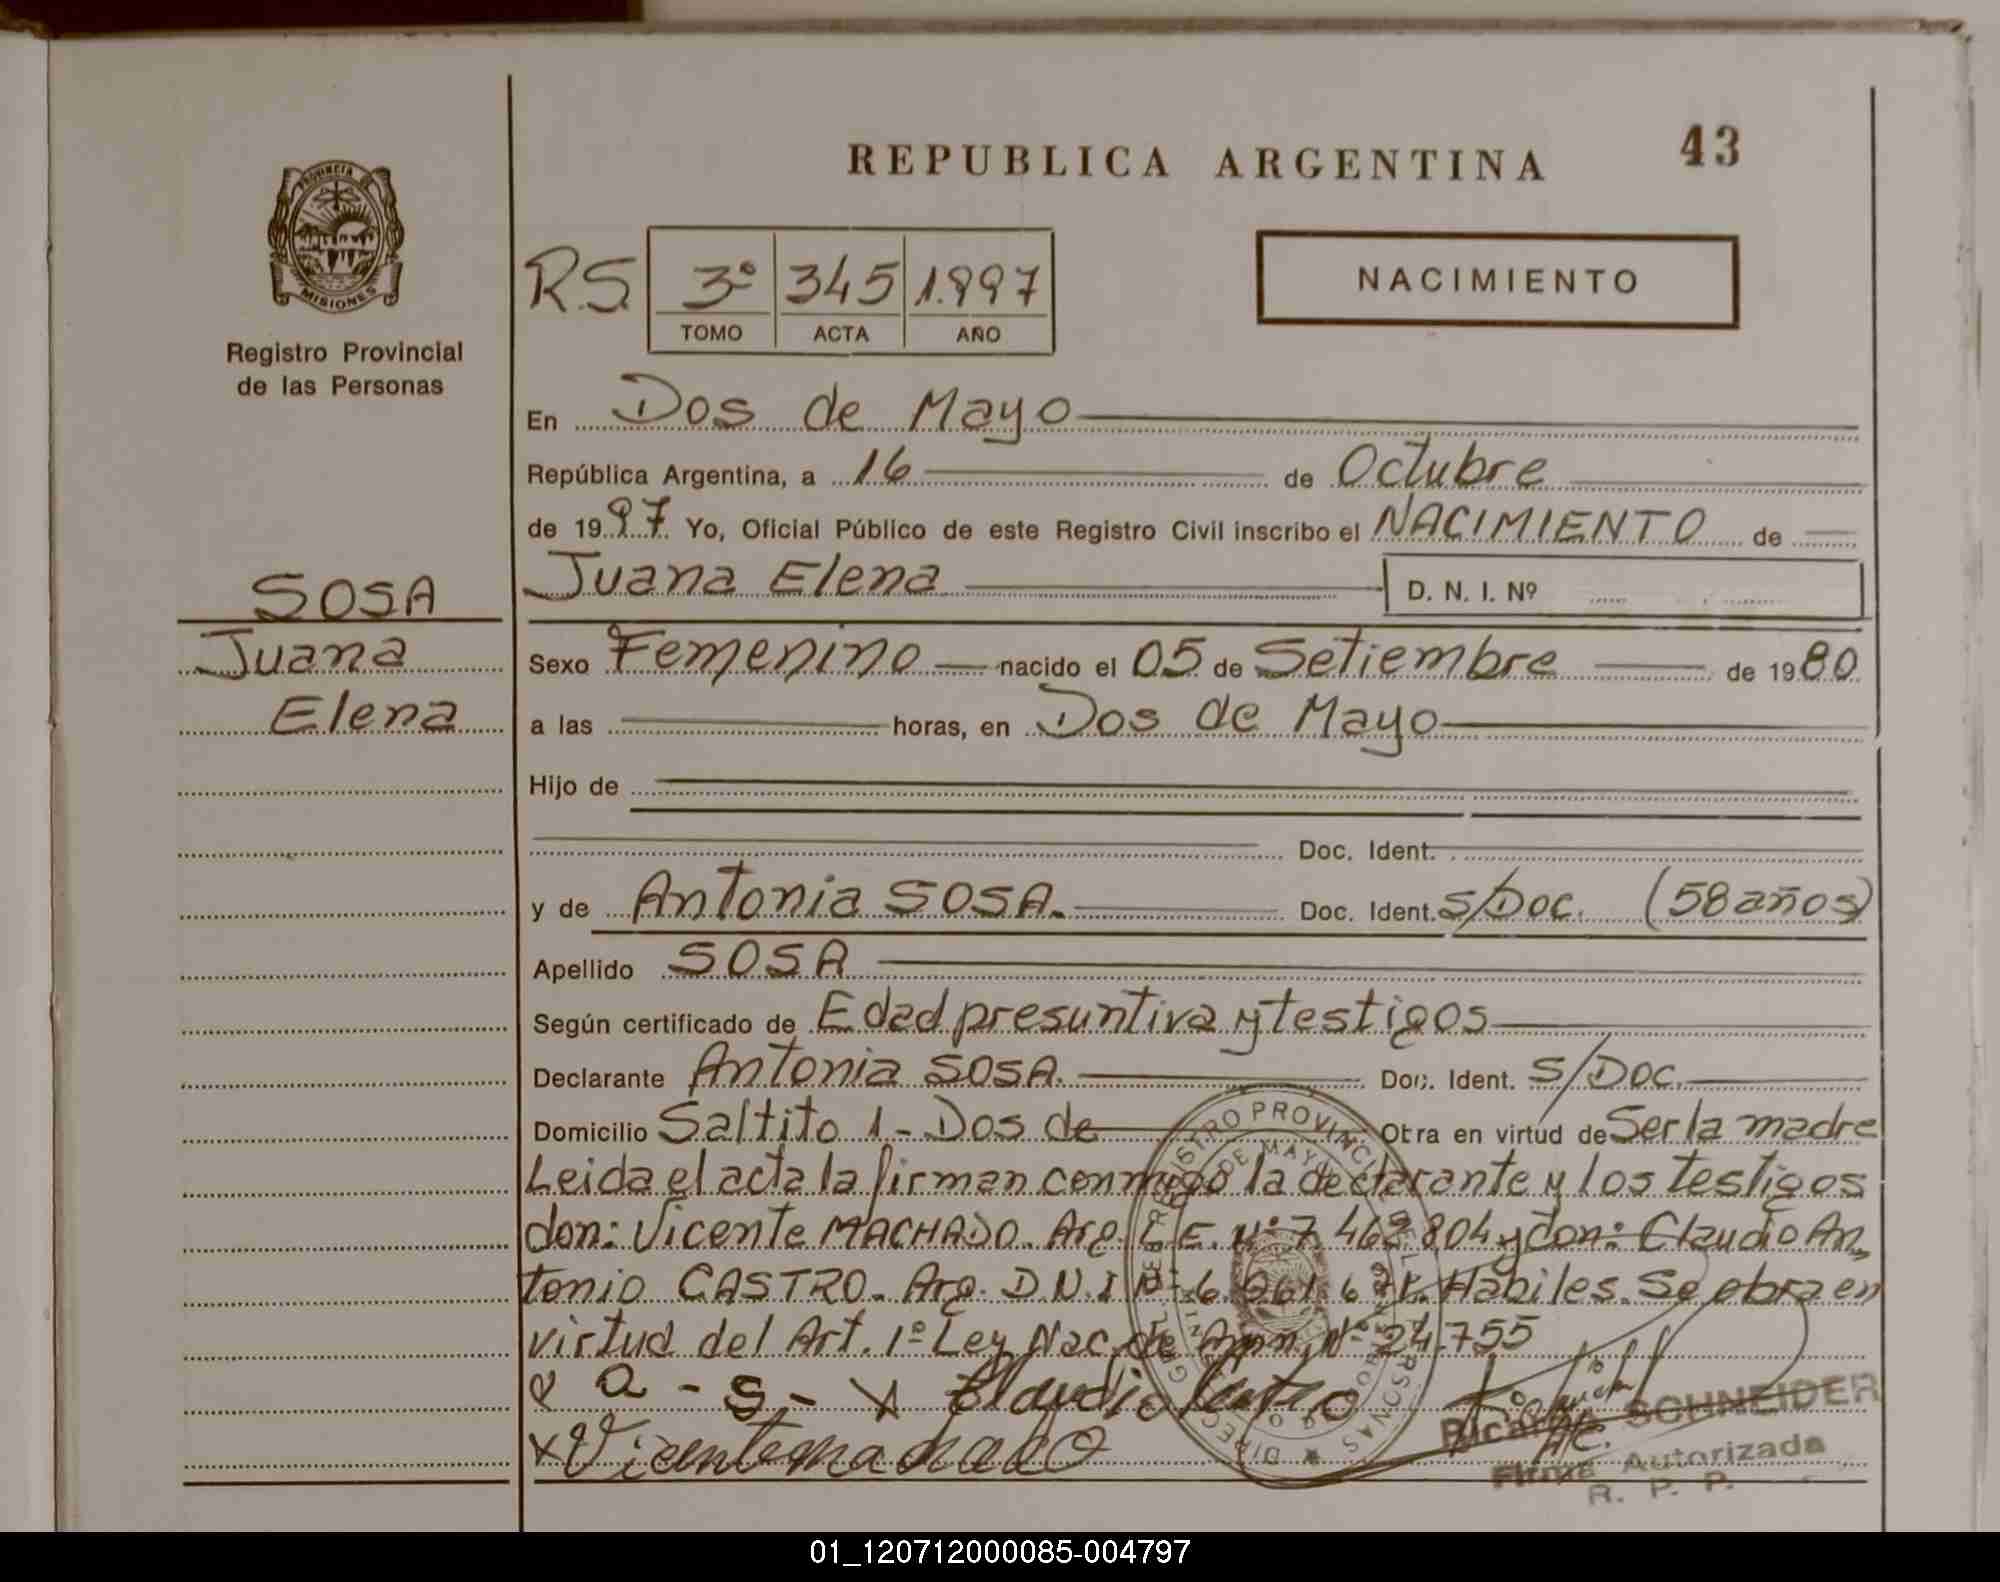 REPUBLICA ARGENTINA 43
PROVINCIA DE
MISIONES
Registro Provincial
de las Personas
R.S. 3º 345 1.997
TOMO ACTA AÑO
NACIMIENTO
En Dos de Mayo
República Argentina, a 16 de Octubre
de 1997 Yo, Oficial Público de este Registro Civil inscribo el NACIMIENTO de
Juana Elena D. N. I. Nº
SOSA
Juana
Elena
Sexo Femenino nacido el 05 de Setiembre de 1980
a las horas, en Dos de Mayo
Hijo de
Doc. Ident.
y de Antonia SOSA. Doc. Ident. S/Doc. (58 años)
Apellido SOSA
Según certificado de Edad presuntiva y testigos
Declarante Antonia SOSA. Doc. Ident. S/Doc.
Domicilio Saltito 1 - Dos de Otra en virtud de Ser la madre
Leida el acta la firman conmigo la declarante y los testigos
don: Vicente MACHADO. Arg. L.E. Nº 7.462.804 y don: Claudio An
tonio CASTRO. Arg. D.N.I. Nº Habiles. Se obra en
virtud del Art. 1º Ley Nac. de Amn. Nº 24.755
x a - s - x Claudio Castro
x Vicente machado
Ricardo SCHNEIDER
Firma Autorizada
R. P. P.
01_120712000085-004797